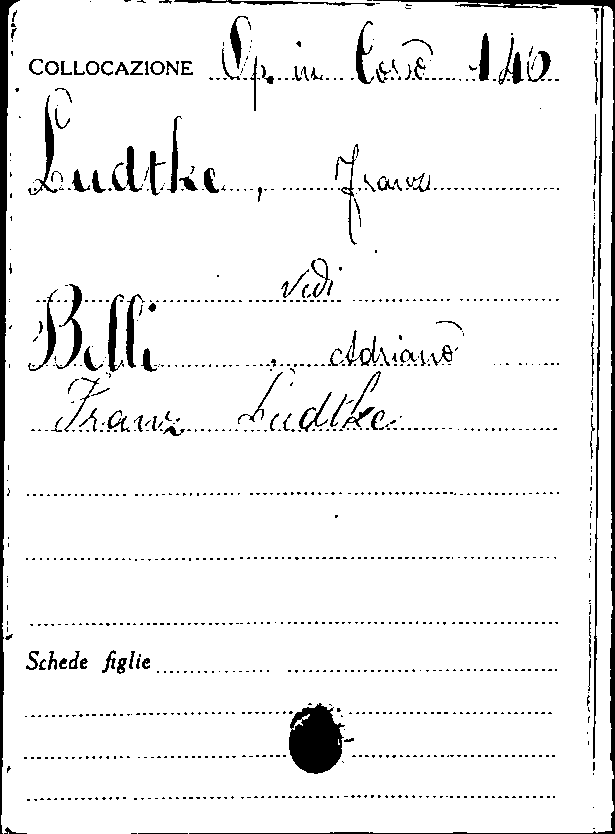 COLLOCAZIONE Op. in Corso 140
Ludtke, Franz
vedi
Belli, Adriano
Franz Lüdtke
Schede figlie